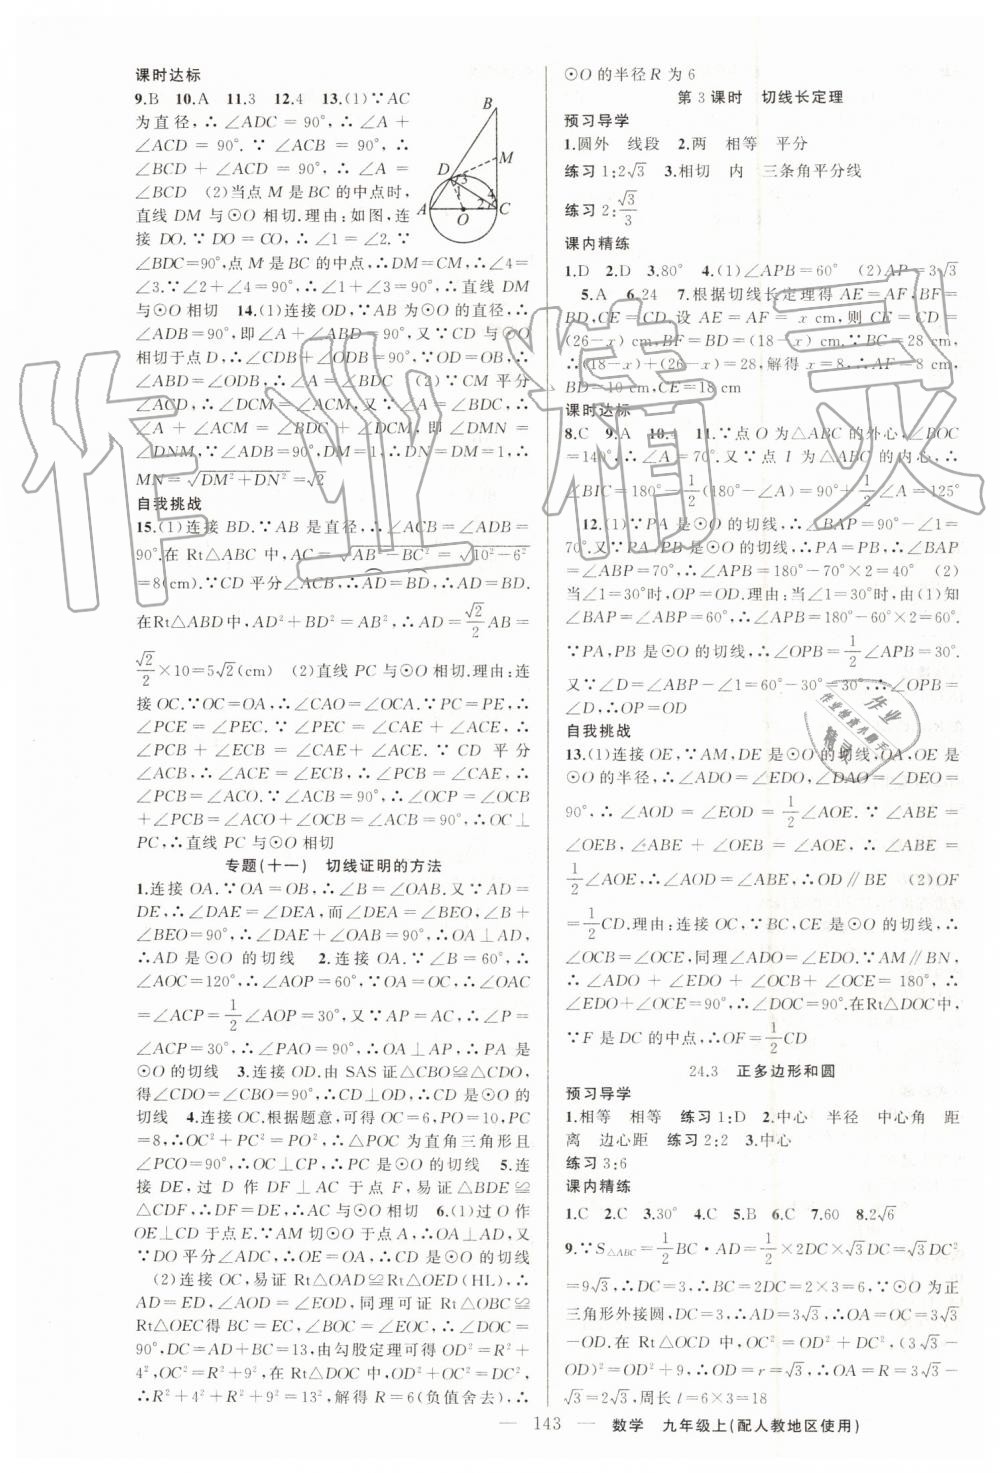 课时达标
9.B 10.A 11.3 12.4 13.(1)∵AC
为直径,∴∠ADC=90°,∴∠A+
∠ACD=90°.∵∠ACB=90°,∴
∠BCD+∠ACD=90°,∴∠A=
∠BCD (2)当点 M 是 BC 的中点时,
直线 DM 与⊙O 相切.理由:如图,连
接 DO.∵DO=CO,∴∠1=∠2.∵
∠BDC=90°,点 M 是 BC 的中点,∴DM=CM,∴∠4=
∠3.∵∠2+∠4=90°,∴∠1+∠3=90°,∴直线 DM
与⊙O 相切 14.(1)连接 OD.∵AB 为⊙O 的直径,∴
∠ADB=90°,即∠A+∠ABD=90°,又∵CD 与⊙O
相切于点 D,∴∠CDB+∠ODB=90°.∵OD=OB,∴
∠ABD=∠ODB,∴∠A=∠BDC (2)∵CM 平分
∠ACD,∴∠DCM=∠ACM,又∵∠A=∠BDC,∴
∠A+∠ACM=∠BDC+∠DCM,即∠DMN=
∠DNM,∵∠ADB=90°,DM=1,∴DN=DM=1,∴
MN=√(DM²+DN²)=√2
自我挑战
15.(1)连接 BD.∵AB 是直径,∴∠ACB=∠ADB=
90°.在 Rt△ABC 中,AC=√(AB²-BC²)=√(10²-6²)
=8(cm).∵CD 平分∠ACB,∴AD=BD,∴AD=BD.
在Rt△ABD中,AD²+BD²=AB²,∴AD=√2/2 AB=
√2/2×10=5√2(cm) (2)直线 PC 与⊙O 相切.理由:连
接 OC.∵OC=OA,∴∠CAO=∠OCA.∵PC=PE,∴
∠PCE=∠PEC.∵∠PEC=∠CAE+∠ACE,∴
∠PCB+∠ECB=∠CAE+∠ACE.∵CD 平分
∠ACB,∴∠ACE=∠ECB,∴∠PCB=∠CAE,∴
∠PCB=∠ACO.∵∠ACB=90°,∴∠OCP=∠OCB
+∠PCB=∠ACO+∠OCB=∠ACB=90°,∴OC⊥
PC,∴直线 PC 与⊙O 相切
专题(十一) 切线证明的方法
1.连接 OA.∵OA=OB,∴∠B=∠OAB.又∵AD=
DE,∴∠DAE=∠DEA,而∠DEA=∠BEO,∠B+
∠BEO=90°,∴∠DAE+∠OAB=90°,∴OA⊥AD,
∴AD 是⊙O 的切线 2.连接 OA.∵∠B=60°,∴
∠AOC=120°,∴∠AOP=60°,∵OA=OC,∴∠OAC
=∠ACP=1/2∠AOP=30°,又∵AP=AC,∴∠P=
∠ACP=30°,∴∠PAO=90°,∴OA⊥AP,∴PA 是
⊙O 的切线 3.连接 OD,由 SAS 证△CBO≌△CDO,
得∠CDO=∠CBO=90°,∴OD⊥CD,∴CD 是⊙O 的
切线 4.连接 OC.根据题意,可得 OC=6,PO=10,PC
=8,∴OC²+PC²=PO²,∴△POC 为直角三角形且
∠PCO=90°,∴OC⊥CP,∴PC 是⊙O 的切线 5.连
接 DE,过 D 作 DF⊥AC 于点 F,易证△BDE≌
△CDF,∴DF=DE,∴AC 与⊙O 相切 6.(1)过 O 作
OE⊥CD 于点 E.∵AM 切⊙O 于点 A,∴OA⊥AD,又
∵DO 平分∠ADC,∴OE=OA,∴CD 是⊙O 的切线
(2)连接 OC,易证 Rt△OAD≌Rt△OED(HL),∴
AD=ED,∠AOD=∠EOD,同理可证 Rt△OBC≌
Rt△OEC得 BC=EC,∠BOC=∠EOC,∴∠DOC=
90°,DC=AD+BC=13,由勾股定理可得 OD²=R²+
4²,OC²=R²+9²,∴在 Rt△DOC 中,OD²+OC²=DC²,
∴R²+4²+R²+9²=13²,解得 R=6(负值舍去),∴
⊙O 的半径 R 为 6
第 3 课时 切线长定理
预习导学
1.圆外 线段 2.两 相等 平分
练习 1:2√3 3.相切 内 三条角平分线
练习 2:√3/3
课内精练
1.D 2.D 3.80° 4.(1)∠APB=60° (2)AP=3√3
5.A 6.24 7.根据切线长定理得 AE=AF,BF=
BD,CE=CD.设 AE=AF=x cm,则 CE=CD=
(26-x) cm,BF=BD=(18-x) cm.∵BC=28 cm,
∴(18-x)+(26-x)=28,解得 x=8,∴AF=8 cm,
BD=10 cm,CE=18 cm
课时达标
8.C 9.A 11.∵点 O 为△ABC 的外心,∠BOC
=140°,∴∠A=70°.又∵点 I 为△ABC 的内心,∴
∠BIC=180°-1/2(180°-∠A)=90°+1/2∠A=125°
12.(1)∵PA 是⊙O 的切线,∴∠BAP=90°-∠1=
70°.又∵PA,PB 是⊙O 的切线,∴PA=PB,∴∠BAP
=∠ABP=70°,∴∠APB=180°-70°×2=40° (2)
当∠1=30°时,OP=OD.理由:当∠1=30°时,由(1)知
∠BAP=∠ABP=60°,∴∠APB=180°-60°×2=60°.
∵PA,PB 是⊙O 的切线,∴∠OPB=1/2∠APB=30°.
又∵∠D=∠ABP-∠1=60°-30°=30°,∴∠OPB=
∠D,∴OP=OD
自我挑战
13.(1)连接 OE,∵AM,DE 是⊙O 的切线,OA,OE 是
⊙O 的半径,∴∠ADO=∠EDO,∠DAO=∠DEO=
90°,∴∠AOD=∠EOD=1/2∠AOE.∵∠ABE=
∠OEB,∠ABE+∠OEB=∠AOE,∴∠ABE=
1/2∠AOE,∴∠AOD=∠ABE,∴OD∥BE (2)OF
=1/2CD.理由:连接 OC,∵BC,CE 是⊙O 的切线,∴
∠OCB=∠OCE,同理∠ADO=∠EDO.∵AM∥BN,
∴∠ADO+∠EDO+∠OCB+∠OCE=180°,∴
∠EDO+∠OCE=90°,∴∠DOC=90°.在Rt△DOC中,
∵F 是 DC 的中点,∴OF=1/2CD
24.3 正多边形和圆
预习导学
1.相等 相等 练习 1:D 2.中心 半径 中心角 距
离 边心距 练习 2:2 3.中心
练习 3:6
课内精练
1.C 2.C 3.30° 4.C 5.B 6.C 7.60 8.2√6
9.∵S△ABC=1/2BC·AD=1/2×2DC×√3DC=√3DC²
=9√3,∴DC=3,∴BC=2DC=2×3=6,∵⊙O 为正
三角形外接圆,DC=3,∴AD=3√3,∴OA=OC=3√3
-OD.在 Rt△OCD 中,OC²=OD²+DC²,∴(3√3-
OD)²=OD²+9,∴OD=r=√3,∴OA=R=3√3-√3
=2√3,周长 l=6×3=18
B
M
D
3
4
1
2
A
O
C
作业精灵
作业
作业检查小助手
精灵
143 数学 九年级上(配人教地区使用)